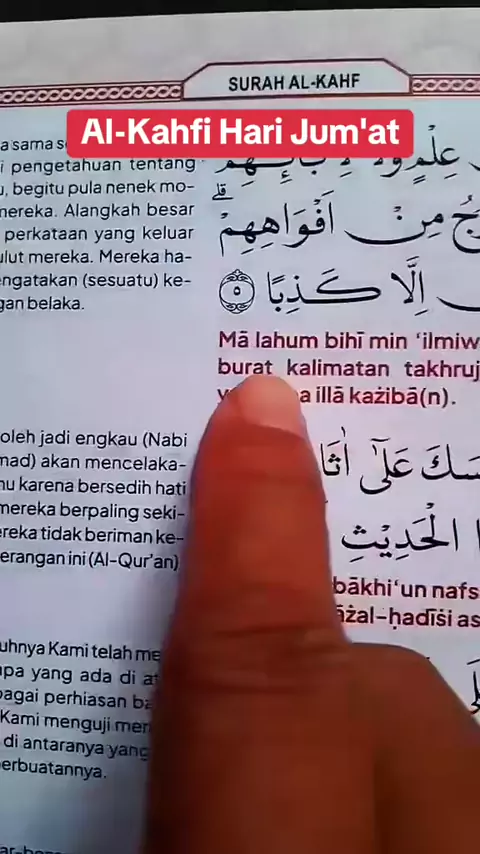 SURAH AL-KAHF
Al-Kahfi Hari Jum'at
a sama
i pengetahuan tentang
, begitu pula nenek mo-
mereka. Alangkah besar
perkataan yang keluar
ulut mereka. Mereka ha-
engatakan (sesuatu) ke-
gan belaka.
عِلْمٍ
مِنْ اَفْوَاهِهِمْۗ
اِلَّا كَذِبًا ٥
Mā lahum bihī min ‘ilmiw
burat kalimatan takhruj
a illā każibā(n).
oleh jadi engkau (Nabi
mad) akan mencelaka-
mu karena bersedih hati
mereka berpaling seki-
ereka tidak beriman ke-
erangan ini (Al-Qur'an)
عَلٰٓى
الْحَدِيْثِ
bākhi‘un nafs
āżal-ḥadīṡi as
uhnya Kami telah me
apa yang ada di at
bagai perhiasan ba
Kami menguji men
di antaranya yang
perbuatannya.